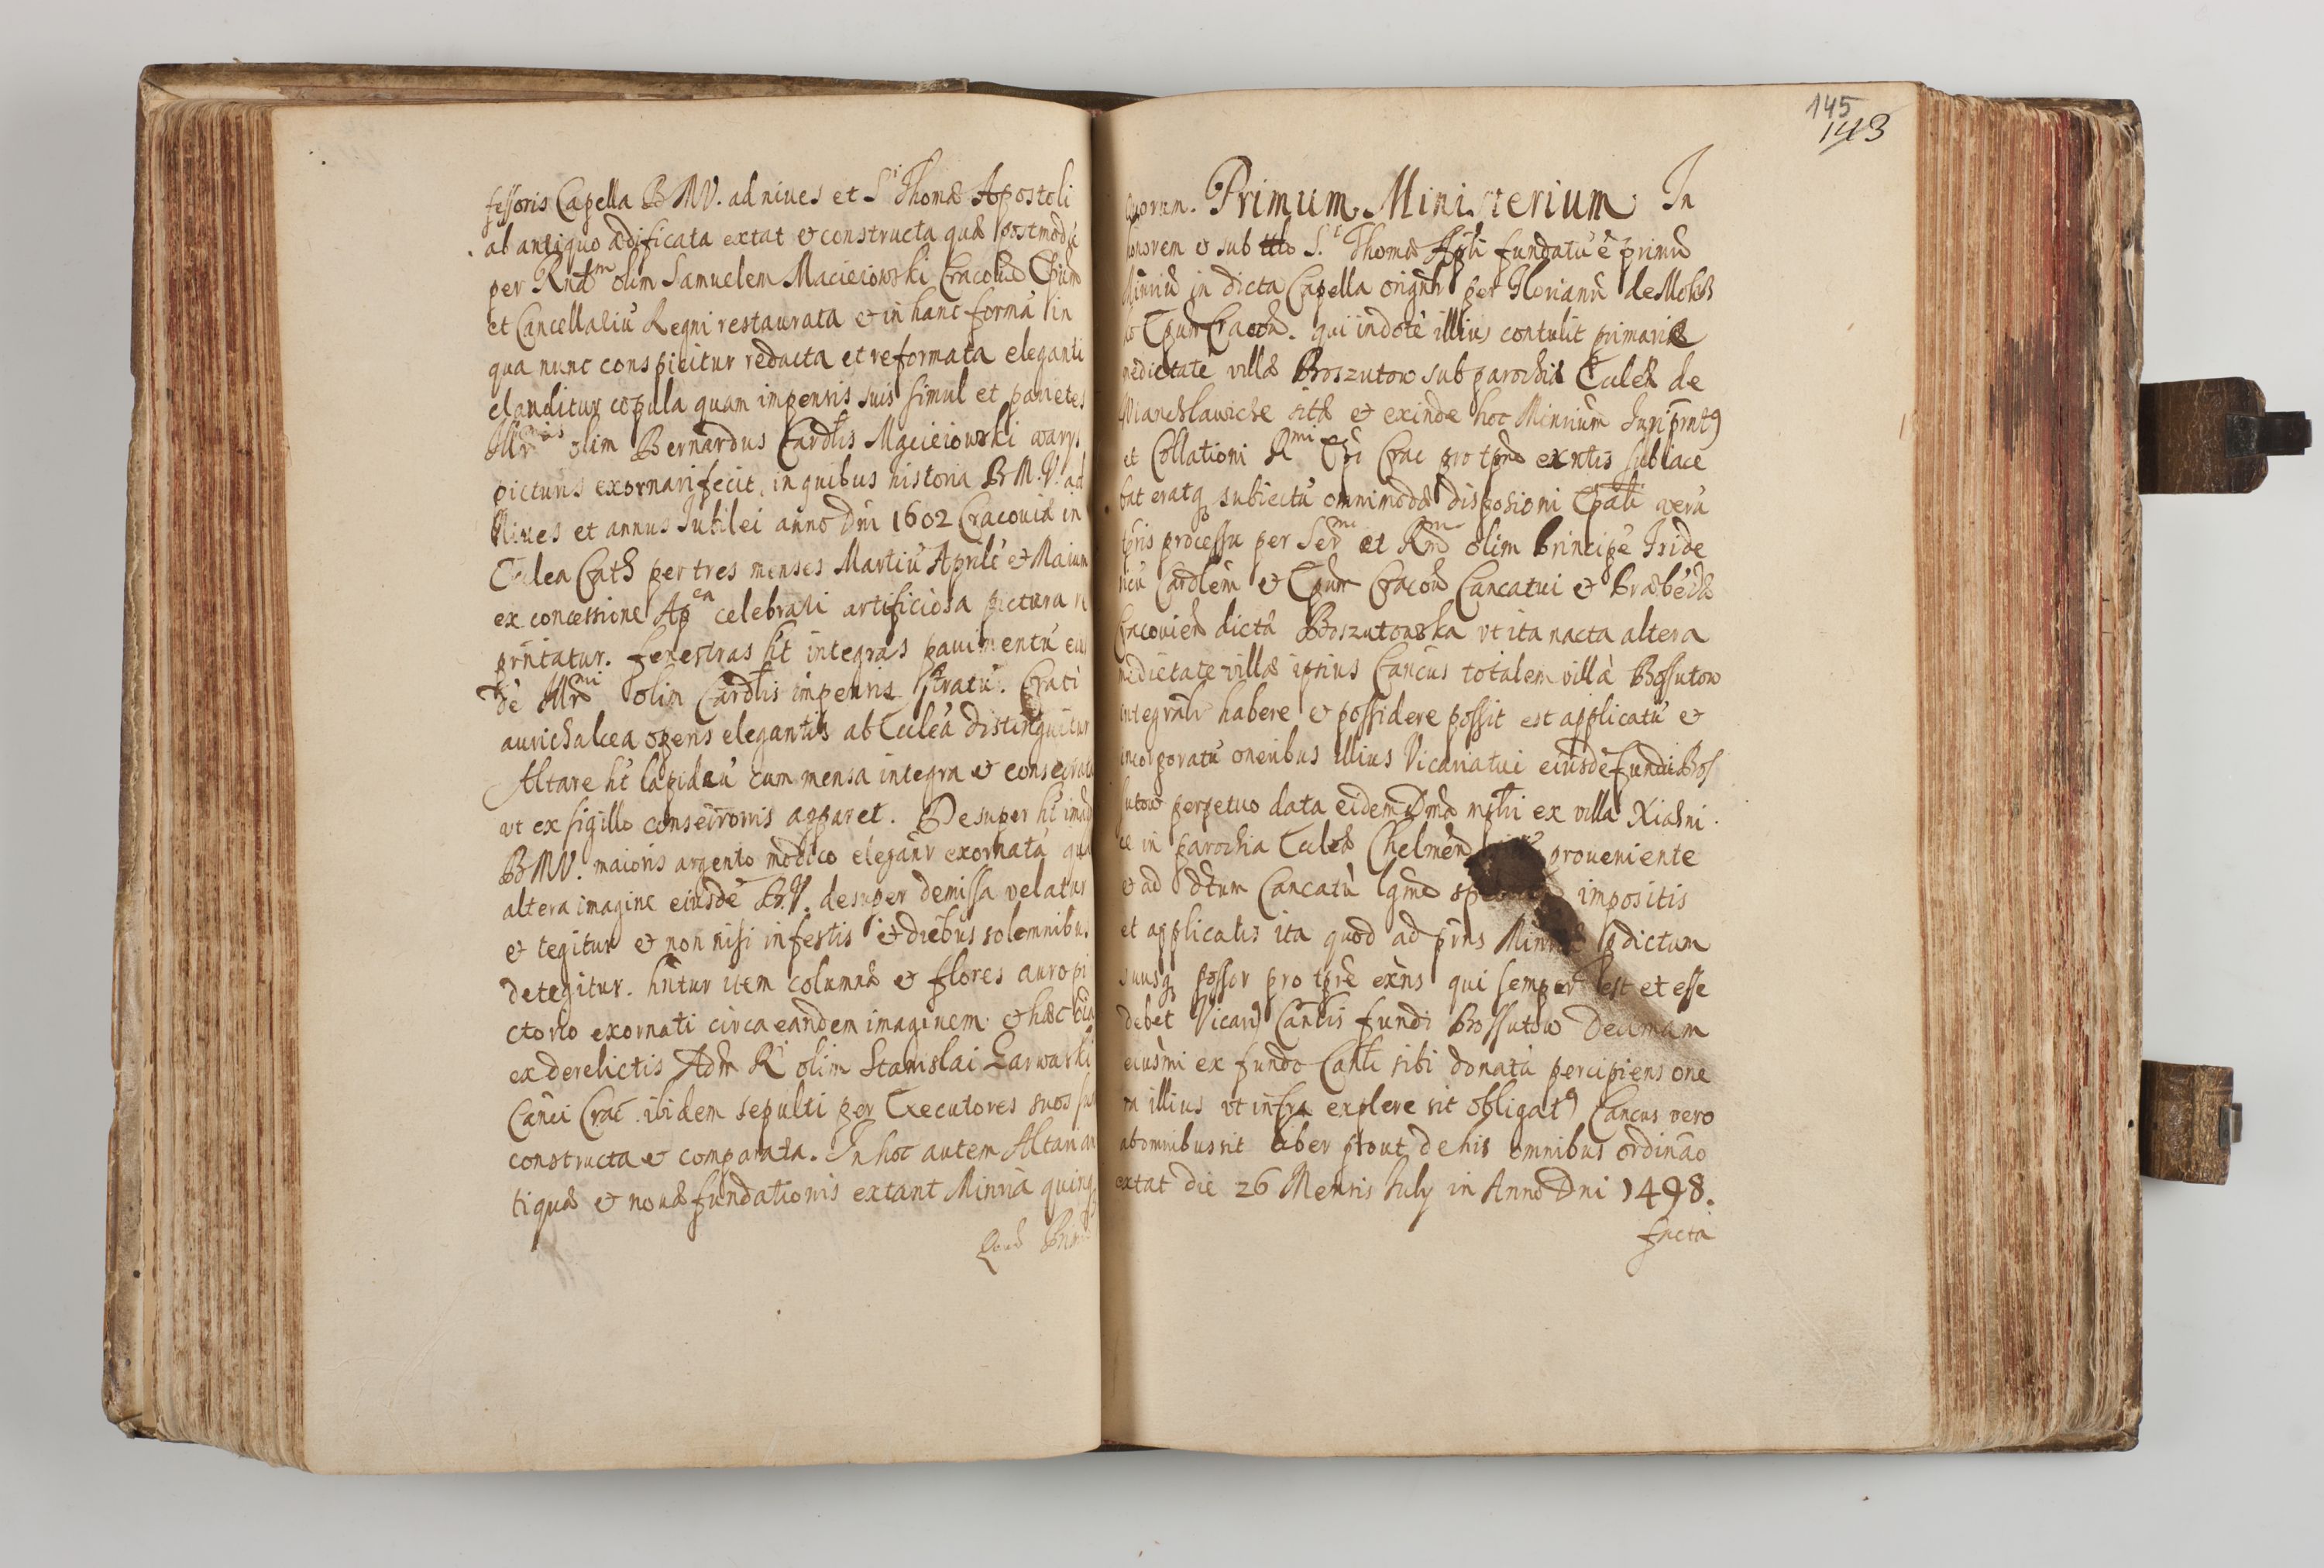 fessoris Capella B M V. ad niues et Sͭi Thomæ Apostoli
ab antiquo ædificata extat et constructa quæ postmodũ
per Rndm olim Samuelem Macieiowski Cracouien Epum
et Cancellariũ Regni restaurata et in hanc formã in
qua nunc conspicitur redacta et reformata eleganti
clauditur copula quam impensis suis simul et parietes
Illr̃mus olim Bernardus Cardlis Macieiowski varys
picturis exornari fecit, in quibus historia B M. V. ad
Niues et annus Iubilei anno Dni 1602 Cracouiæ in
Ecclea Cath per tres menses Martiũ Aprilẽ et Maium
ex concessione Apca celebrati artificiosa pictura re
prñtatur. fenestras ht integras pauimentũ eius
dẽ Illrmi olim Cardlis impensis stratũ. Crati
aurichalcea operis elegantis ab Ecclea distinguitur
Altare ht lapideũ cum mensa integra et consecrata
vt ex sigillo consecronis apparet. Desuper ht imag
B M V. maioris argento modico eleganr exornatã quæ
altera imagine eiusdẽ B. V. desuper demissa velatur
et tegitur et non nisi in festis et diebus solemnibus
detegitur. hntur item columnæ et flores auro pi
ctorio exornati circa eandem imaginem et hæc oia
ex derelictis Adm R. olim Stanislai Zarwaski
Canci Crac. ibidem sepulti per Executores suos sunt
constructa et comparata. In hoc autem Altari an
tiquæ et nouæ fundationis extant Minria quinq
Quor Prim
145
143
Quorum. Primum Ministerium In
honorem et sub ttlo S.ti Thomæ Apli fundatũ ẽ primũ
Minriũ in dicta Capella orignlr per Florianũ de Moks
ko Epum Cracou. qui in dotẽ illius contulit primariæ
medietatẽ villæ Boszutow sub parochia Eccleæ de
Mianchlawiche sitæ et exinde hoc Minrium Iuri prñtãs
et Collationi Rmi Epi Crac pro tpre exntis subiace
bat eratq subiectũ omnimodæ disposioni Epali verũ
tpris processu per Sermũ et Rmũ olim Principẽ Fride
ricũ Cardlem et Epum Cracou Cancatui et Præbẽdæ
Cracouien dictæ Boszutowska vt ita nacta altera
medietate villæ ipsius Cancus totalem villã Bossutow
integralr habere et possidere possit est applicatũ et
incorporatũ oneribus illius Vicariatui eiusdẽ fundi Bos
sutow perpetuo data eidem Dma mlti ex villa Xiasni
ce in parochia Eccleæ Chelmen proueniente
et ad dtum Cancatũ lgme impositis
et applicatis ita quod ad prns Minriũ pdictum
suusq possor pro tpre exns qui semper est et esse
debet Vicarius Canlis fundi Bossutow Decimam
eiusmi ex fundo Canli sibi donatã percipiens one
ra illius vt infra explere sit obligatus Cancus vero
ab omnibus sit liber prout de his omnibus ordinao
extat die 26 Mensis July in Anno Dni 1498.
facta